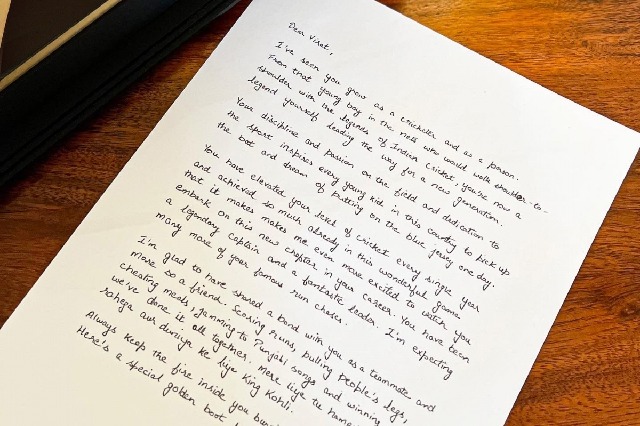 Dear Virat,
I've seen you grow as a cricketer and as a person.
From that young boy in the nets who would walk shoulder-to-
shoulder with the legends of Indian Cricket, you're now a
legend yourself leading the way for a new generation.
Your discipline and passion on the field and dedication to
the sport inspires every young kid in this country to pick up
the bat and dream of putting on the blue jersey one day.
You have elevated your level of cricket every single year
and achieved so much already in this wonderful game
that it makes makes me even more excited to watch you
embark on this new chapter in your career. You have been
a legendary captain and a fantastic leader. I'm expecting
many more of your famous run chases.
I'm glad to have shared a bond with you as a teammate and
more so a friend. Scoring runs, pulling people's legs,
cheating meals, jamming to Punjabi songs and winning
we've done it all together. Mere liye tu hame
rahega aur duniya ke liye King Kohli.
Always keep the fire inside you bur
Here's a special golden boot